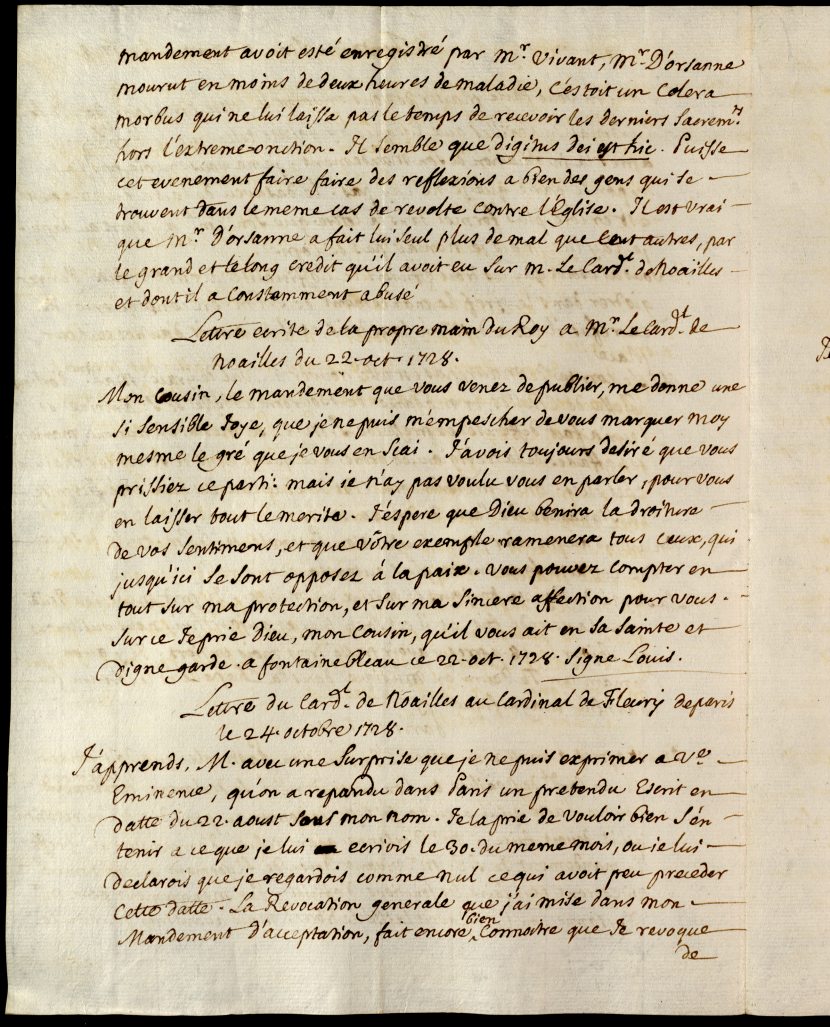 mandement avoit esté enregistré par mr. Vivant, mr. D'orsanne
mourut en moins de deux heures de maladie, c'éstoit un Colera
morbus qui ne lui laissa pas le temps de recevoir les derniers sacremts
hors l'extreme=onction. Il semble que digitus dei est hic. Puisse
cet evenement faire faire des reflexions a bien des gens qui se
trouvent dans le meme cas de revolte contre l'église. Il est vrai
que mr. D'orsanne a fait lui seul plus de mal que Cent autres, par
le grand et le long credit qu'il avoit eu sur m. Le Cardt. de Noailles
et dont il a Constamment abusé
Lettre ecrite de la propre main du Roy a Mr. Le Cardt. de
Noailles du 22. oct. 1728.
Mon Cousin, le mandement que vous venez de publier, me donne une
si sensible Joye, que je ne puis m'empescher de vous marquer moy
mesme le gré que je vous en scai. J'avois toujours desiré que vous
prissiez ce parti: mais je n'ay pas voulu vous en parler, pour vous
en laisser tout le merite. J'éspere que Dieu benira la droiture
de vos sentimens, et que vôtre exemple ramenera tous ceux, qui
jusqu'ici se sont opposez á la paix. vous pouvez compter en
tout sur ma protection, et sur ma sincere affection pour vous.
sur ce Je prie Dieu, mon Cousin, qu'il vous ait en sa sainte et
digne garde. a fontainebleau ce 22. oct. 1728. signe Louis.
Lettre du Cardt. de Noailles au Cardinal de Fleury de paris
le 24. octobre 1728.
J'apprends, M. avec une surprise que je ne puis exprimer a Ve
Eminence, qu'on a repandu dans Paris un pretendu Escrit en
datte du 22. aoust sous mon nom. Je la prie de vouloir bien s'én
tenir a ce que je lui ecrivis le 30. du meme mois, ou je lui
declarois que je regardois comme nul ce qui avoit peu preceder
cette datte. La Revocation generale que j'ai mise dans mon
Mandement d'acceptation, fait encore bien Connoitre que Je revoque
de